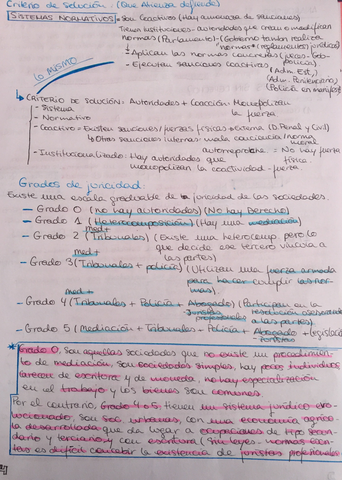 Criterio de solución: (Que Atienza defiende)
SISTEMAS NORMATIVOS → Son coactivos (Hay amenaza de sanciones)
Tienen instituciones-autoridades que crean o modifican
normas (Parlamento)-(Gobierno también realiza
normas→reglamentos jurídicos)
Aplican las normas concretas (jueces-Gob-
políticos)
- Ejecutan sanciones coactivas (Adm. Est,
Adm. Penitenciaria,
Policía en manifest
LO MISMO
CRITERIO DE SOLUCIÓN: Autoridades + Coacción: Monopolizan
la fuerza
- Sistema
- Normativo
- Coactivo = Existen sanciones/penas físicas → Sistema (D. Penal y Civil)
Otras sanciones internas: mala conciencia/norma
moral
autorreproche. = No hay fuerza
física.
- Institucionalizado: Hay autoridades que
monopolizan la coactividad-fuerza
Grados de juricidad:
Existe una escala graduable de la juricidad de las sociedades.
- Grado 0 (no hay autoridades) (No hay Derecho)
- Grado 1 (Heterocomposición) (Hay una mediación)
med+
- Grado 2 (Tribunales) (Existe una heterocomp. pero lo
que decide ese tercero vincula a
las partes)
med+
- Grado 3 (Tribunales + policía) (Utilizan una fuerza armada
para hacer cumplir las nor-
mas).
med+
- Grado 4 (Tribunales + Policía + Abogado) (Participan en la
Juristas resolución
profesionales a las partes)
- Grado 5 (Mediación + Tribunales + Policía + Abogado + legislación
* Grado 0, son aquellas sociedades que no existe un procedimien-
to de mediación, son sociedades simples, hay pocos individuos
carecen de escritura y de moneda, no hay especialización
en el trabajo y los bienes son comunes.
Por el contrario, Grado 4 o 5, tienen un sistema jurídico evo-
lucionado, son soc. urbanas, con una economía agríco-
la desarrollada que da lugar a ocupaciones de tipo secun-
dario y terciario, y con escritura (Sin leyes-normas escri-
tas es difícil concebir la existencia de juristas profesionales